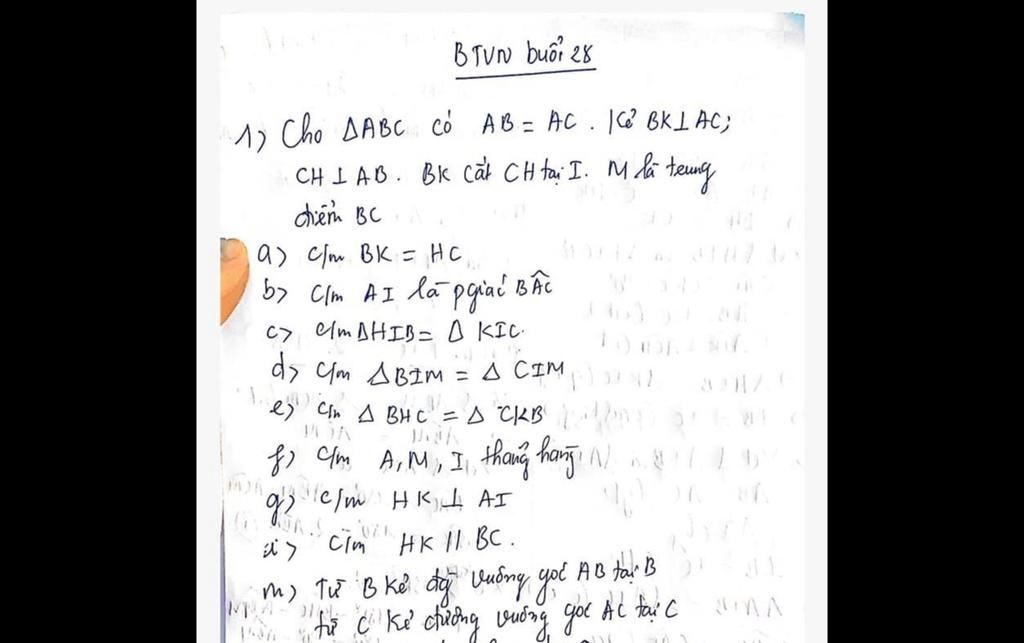 BTVN buổi 28
1) Cho ΔABC có AB = AC. Kẻ BK⊥AC;
CH⊥AB. BK cắt CH tại I. M là trung
điểm BC
a) C/m BK = HC
b) C/m AI là pgiác BÂC
c) c/m ΔHIB = Δ KIC.
d) C/m ΔBIM = Δ CIM
e) C/m Δ BHC = Δ CKB
f) C/m A, M, I thẳng hàng
g) c/m HK ⊥ AI
i) C/m HK // BC.
m) Từ B kẻ đg vuông góc AB tại B
từ C kẻ đường vuông góc AC tại C